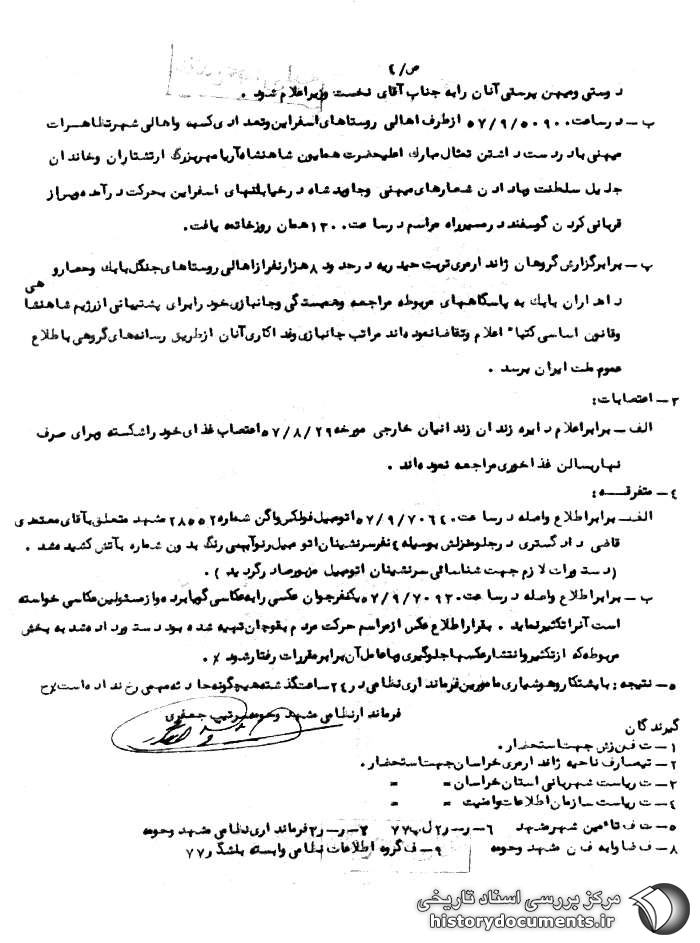 ص/٤
دوستی ومیهن پرستی آنان رابه جناب آقای نخست وزیراعلام شود .
ب ــ درساعت ۰۹۰۰ ۵۷/۹/۵ ازطرف اهالی روستاهای اسفراین وتعدادی کسبه واهالی شهرتظاهرات
میهنی بادردست داشتن تمثال مبارك اعلیحضرت همایون شاهنشاه آریامهربزرگ ارتشتاران وخاندان
جلیل سلطنت وبادادن شعارهای میهنی وجاویدشاه درخیابانهای اسفراین بحرکت درآمده وپس از
قربانی کردن گوسفند درمسیرراه مراسم درساعت ۱۳۰۰ همان روزخاتمه یافت.
پ ــ برابرگزارش گروهان ژاندارمری تربت حیدریه درحدود ۸ هزارنفرازاهالی روستاهای جنگل بایك وحصارو
راهداران بایك به پاسگاههای مربوطه مراجعه وهمبستگی وجانبازی خودرابرای پشتیبانی ازرژیم شاهنشاهی
وقانون اساسی کتباً اعلام وتقاضانموده اند مراتب جانبازی وفداکاری آنان ازطریق رسانه های گروهی باطلاع
عموم ملت ایران برسد .
۳ ــ اعتصابات:
الف ــ برابراعلام دایره زندان زندانیان خارجی مورخه ۵۷/۸/۲۹ اعتصاب غذای خودراشکسته وبرای صرف
نهاربسالن غذاخوری مراجعه نموده اند .
٤ ــ متفرقـــه :
الف ــ برابراطلاع واصله درساعت ۰٦٤۰ ۵۷/۹/۷ اتومبیل فولکس واگن شماره ۲۸۵۵۲ مشهد متعلق بآقای معتمدی
قاضی دادگستری درجلومنزلش بوسیله ٤ نفرسرنشینان اتومبیل رنوآبی رنگ بدون شماره بآتش کشیده شد .
(دستورات لازم جهت شناسائی سرنشینان اتومبیل مزبورصادرگردید ) .
ب ــ برابراطلاع واصله درساعت ۰۹۳۰ ۵۷/۹/۷ یکنفرجوان عکسی رابه عکاسی گویابرده وازمسئولین عکاسی خواسته
است آنراتکثیرنماید . بقراراطلاع عکس ازمراسم حرکت مردم بقوچان تهیه شده بود دستورداده شد به بخش
مربوطه که ازتکثیروانتشارعکسهاجلوگیری وباعامل آن برابرمقررات رفتارشود ٪.
۵ ــ نتیجه : باپشتکاروهوشیاری مامورین فرمانداری نظامی در۲٤ ساعت گذشته هیچگونه حادثه مهمی رخ نداده است٪ح
فرماندارنظامی مشهد وحومه سرتیپ جعفری
گیرندگان
۱ ــ ت ف ن ز ش جهت استحضار.
۲ ــ تیمسارف ناحیه ژاندارمری خراسان جهت استحضار.
۳ ــ ت ریاست شهربانی استان خراسان = =
٤ ــ ت ریاست سازمان اطلاعات وامنیت = =
۵ ــ ت ف تاءمین شهرمشهد ٦ ــ ر ــ ر۲ ل پ ۷۷ ۷ ــ ر ــ ر۳ فرمانداری نظامی مشهد وحومه
۸ ــ ف ضاوابه ف ن مشهد وحومه ۹ ــ ف گروه اطلاعات نظامی وابسته بلشگر۷۷
مرکز بررسی اسناد تاریخی
historydocuments.ir